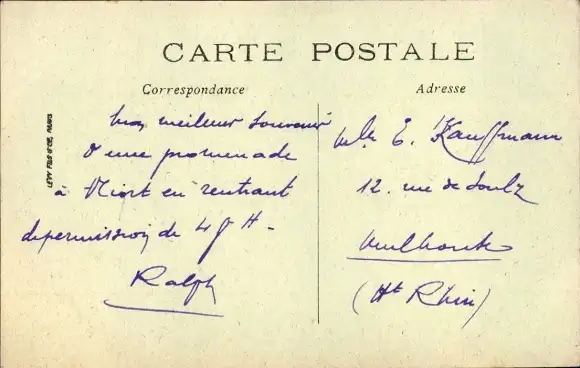 CARTE POSTALE
Correspondance
Adresse
LÉVY FILS & CIE, PARIS
Mon meilleur souvenir
d'une promenade
à Niort en rentrant
de permission de 48 H -
Ralph
Mlle E. Kauffmann
12. rue de Soultz
Mulhouse
(Ht Rhin)